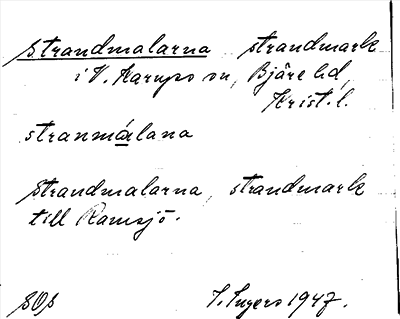 strandmalarna strandmark
i V. Karups sn, Bjäre hd,
Krist. l.
stranmálana
strandmalarna, strandmark
till Ramsjö.
SOs I. Ingers 1947.